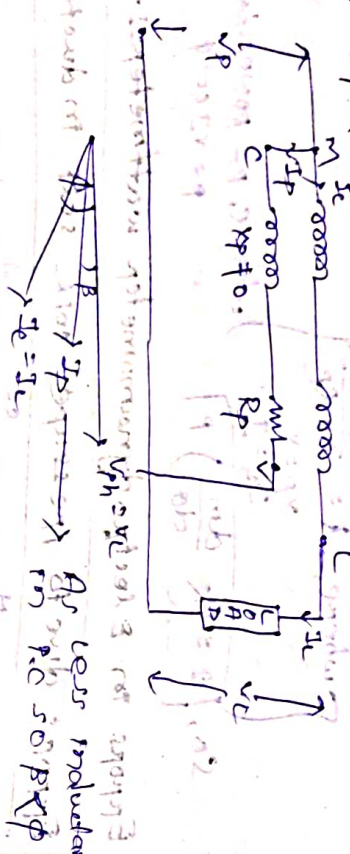 Vp
M
Ic
Ip
C
Xp ≠ 0.
Rp
V
L
IL
LOAD
VL
Vph = VL
β
ϕ
Ip
Ic = IL
As less inductan
in P.C so β < ϕ